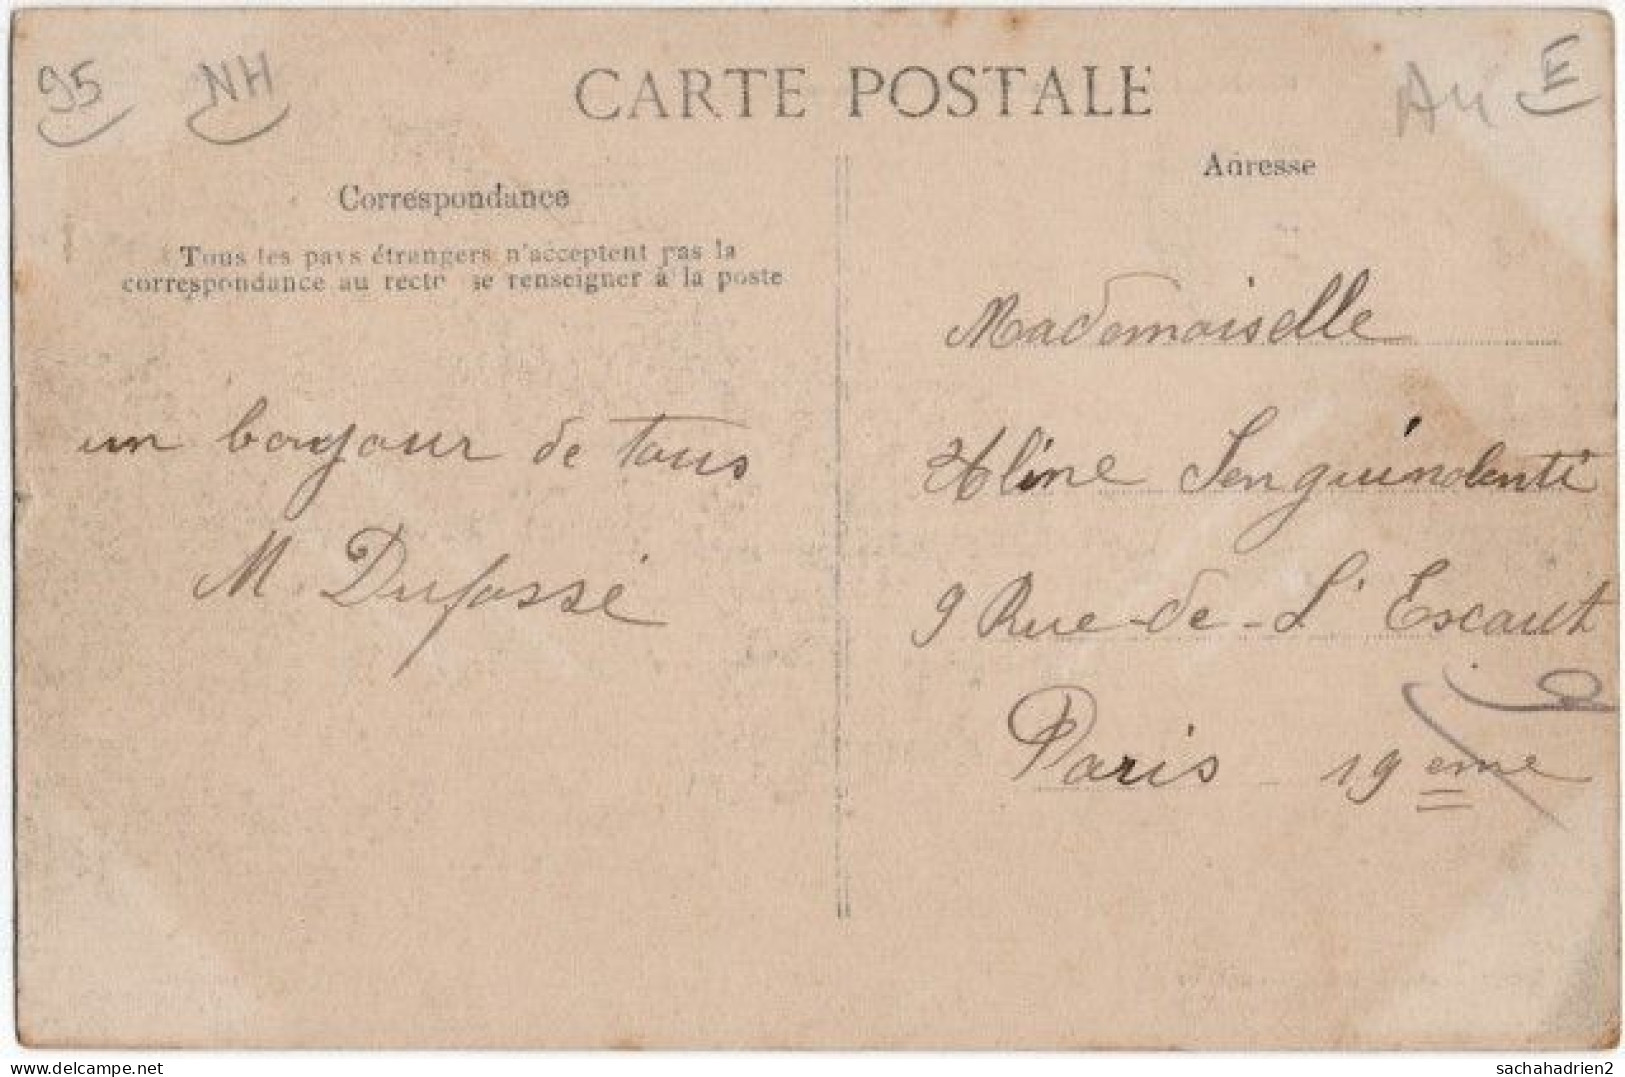 95 NH
E
CARTE POSTALE
Correspondance
Tous les pays étrangers n'acceptent pas la
correspondance au recto se renseigner à la poste
un bonjour de tous
M. Dufossé
Adresse
Mademoiselle
9 Rue-de-L'Escaut
Paris 19 eme
sachahadrien2